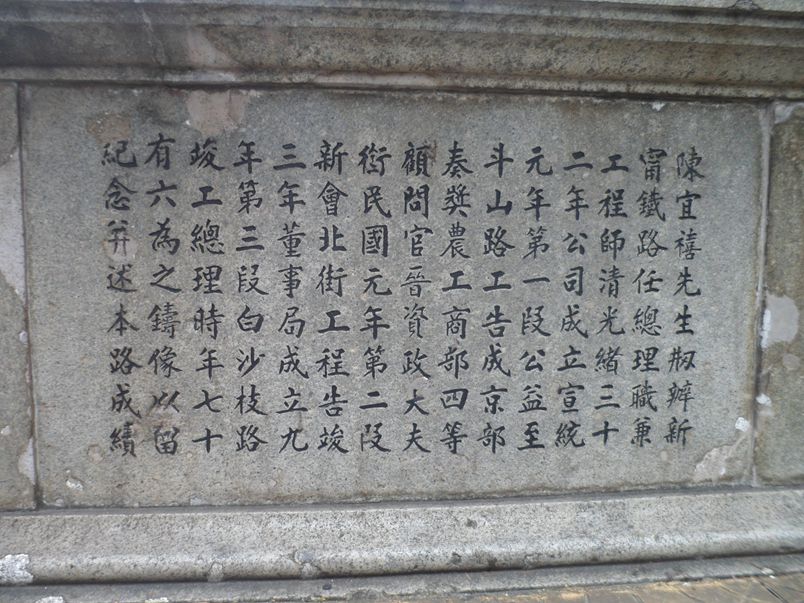 陳宜禧先生剏辦新
甯鐵路任總理職兼
工程師清光緒三十
二年公司成立宣統
元年第一段公益至
斗山路工告成京部
奏獎農工商部四等
顧問官晉資政大夫
銜民國元年第二段
新會北街工程告竣
三年董事局成立九
年第三段白沙枝路
竣工總理時年七十
有六為之鑄像以留
紀念并述本路成績